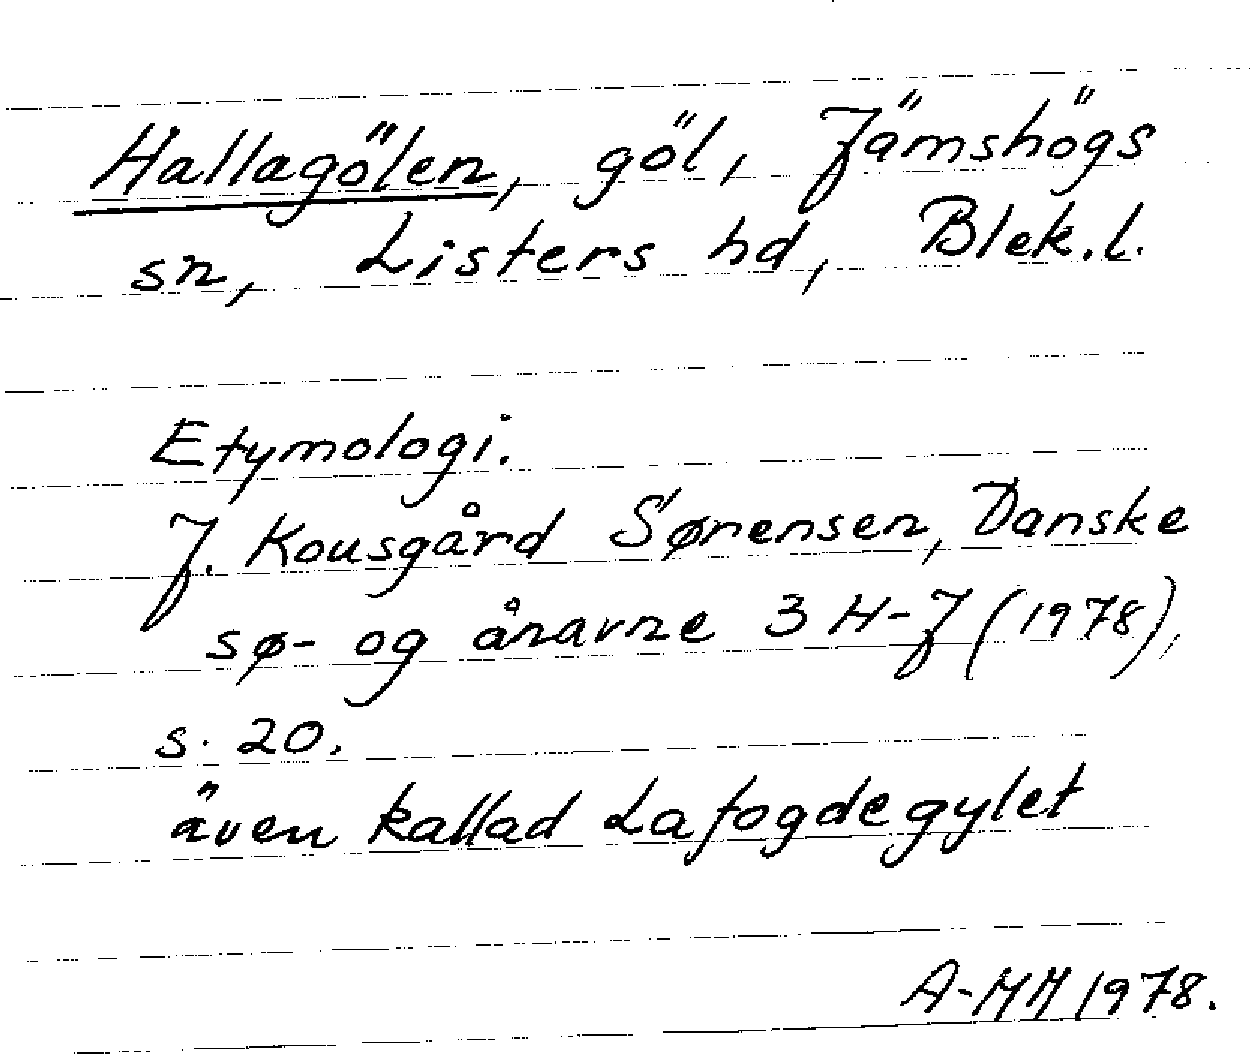 Hallagölen, göl, Jämshögs
sn, Listers hd, Blek.l.
Etymologi.
J. Kousgård Sørensen, Danske
sø- og ånavne 3 H-J (1978),
s. 20.
även kallad Lafogdegylet
A-MM 1978.